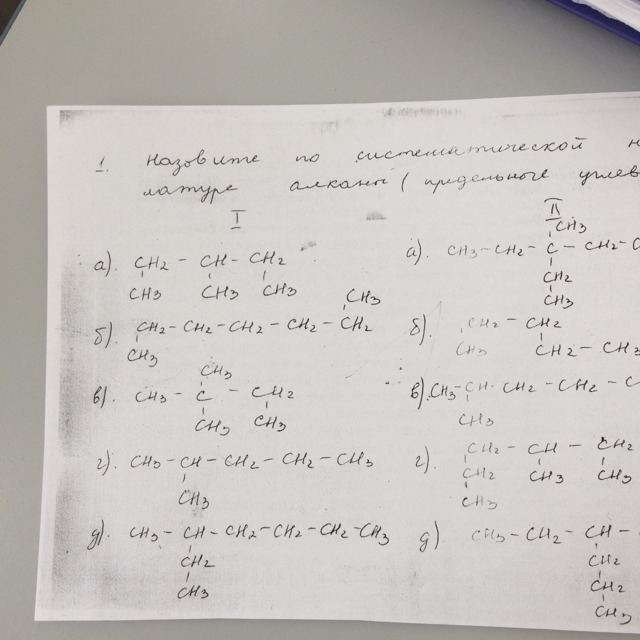 1. Назовите по систематической н
латуре алканы (предельные углев
I
II
а). CH2 - CH - CH2
CH3 CH3 CH3
б). CH3
CH2 - CH2 - CH2 - CH2 - CH2
CH3
в). CH3
CH3 - C - CH2
CH3 CH3
г). CH3 - CH - CH2 - CH2 - CH3
CH3
д). CH3 - CH - CH2 - CH2 - CH2 - CH3
CH2
CH3
CH3
а). CH3 - CH2 - C - CH2 - C
CH2
CH3
б). CH2 - CH2
CH3 CH2 - CH2
в). CH3 - CH - CH2 - CH2 - C
CH3
г). CH2 - CH - CH2
CH2 CH3 CH3
CH3
д) CH3 - CH2 - CH -
CH2
CH2
CH3